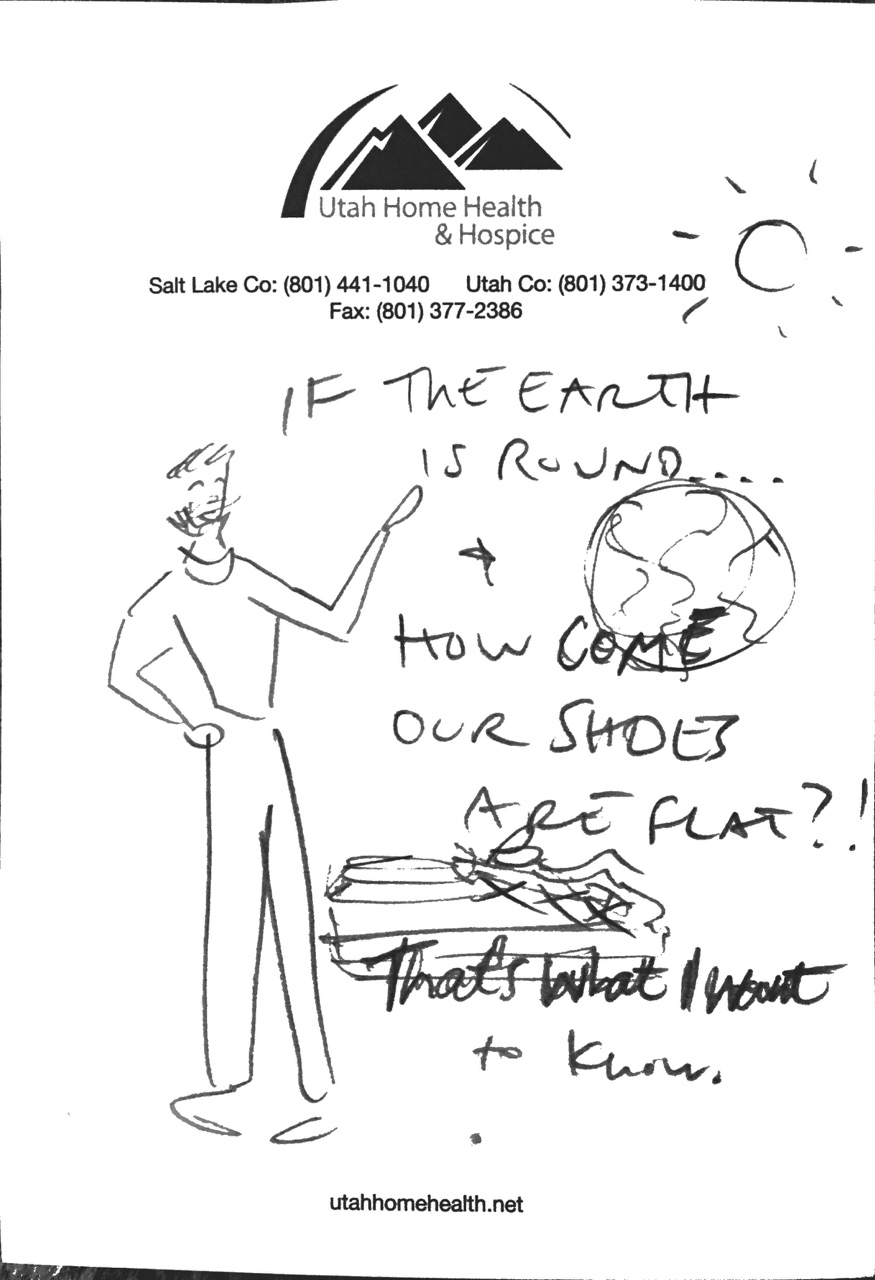 Utah Home Health
& Hospice
Salt Lake Co: (801) 441-1040 Utah Co: (801) 373-1400
Fax: (801) 377-2386
IF THE EARTH
IS ROUND....
HOW COME
OUR SHOES
ARE FLAT?!
That's what I want
to know.
utahhomehealth.net